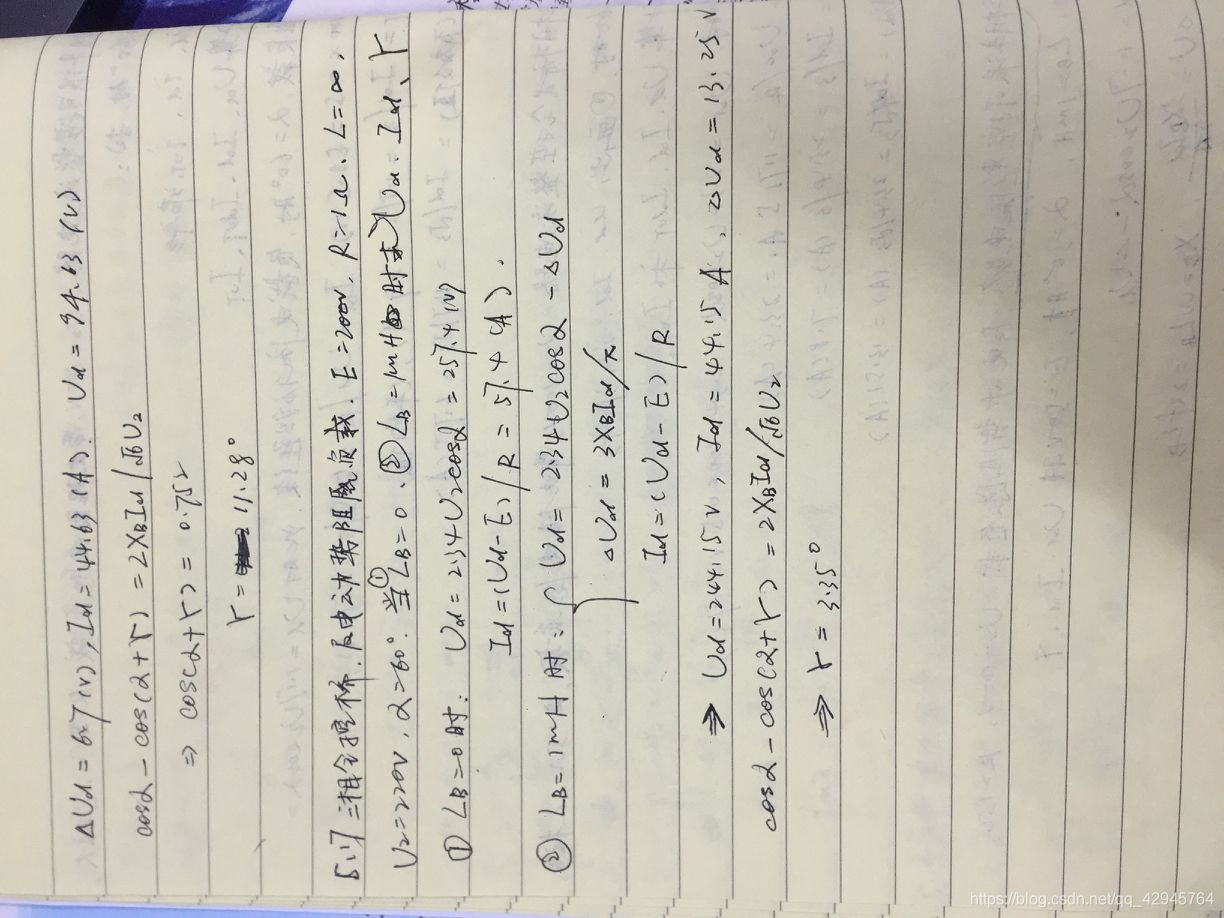 ΔUd = 6.7(V), Id = 44.63(A). Ud = 94.63(V)
cosα - cos(α+γ) = 2XBId/√6U2
⇒ cos(α+γ) = 0.752
γ = 11.28°
[5.17] 三相全控桥. 反电动势阻感负载. E=200V, R=1Ω. L=∞,
U2=220V, α=60°. 当①LB=0. ②LB=1mH时求Ud. Id、γ
① LB=0时: Ud = 2.34U2cosα = 257.4(V)
Id=(Ud-E)/R = 57.4(A).
② LB=1mH时: { Ud = 2.34U2cosα - ΔUd
ΔUd = 3XBId/π
Id=(Ud-E)/R
⇒ Ud=244.15V, Id=44.15A, ΔUd=13.25V
cosα - cos(α+γ) = 2XBId/√6U2
⇒ γ = 3.35°
https://blog.csdn.net/qq_42945764